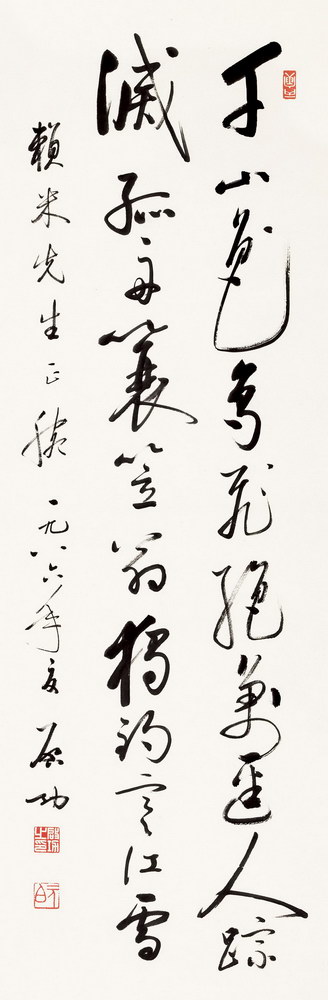 千山鳥飛絕萬逕人踪
滅孤舟蓑笠翁獨釣寒江雪
賴米先生正腕 一九八六年夏 啟功
元白